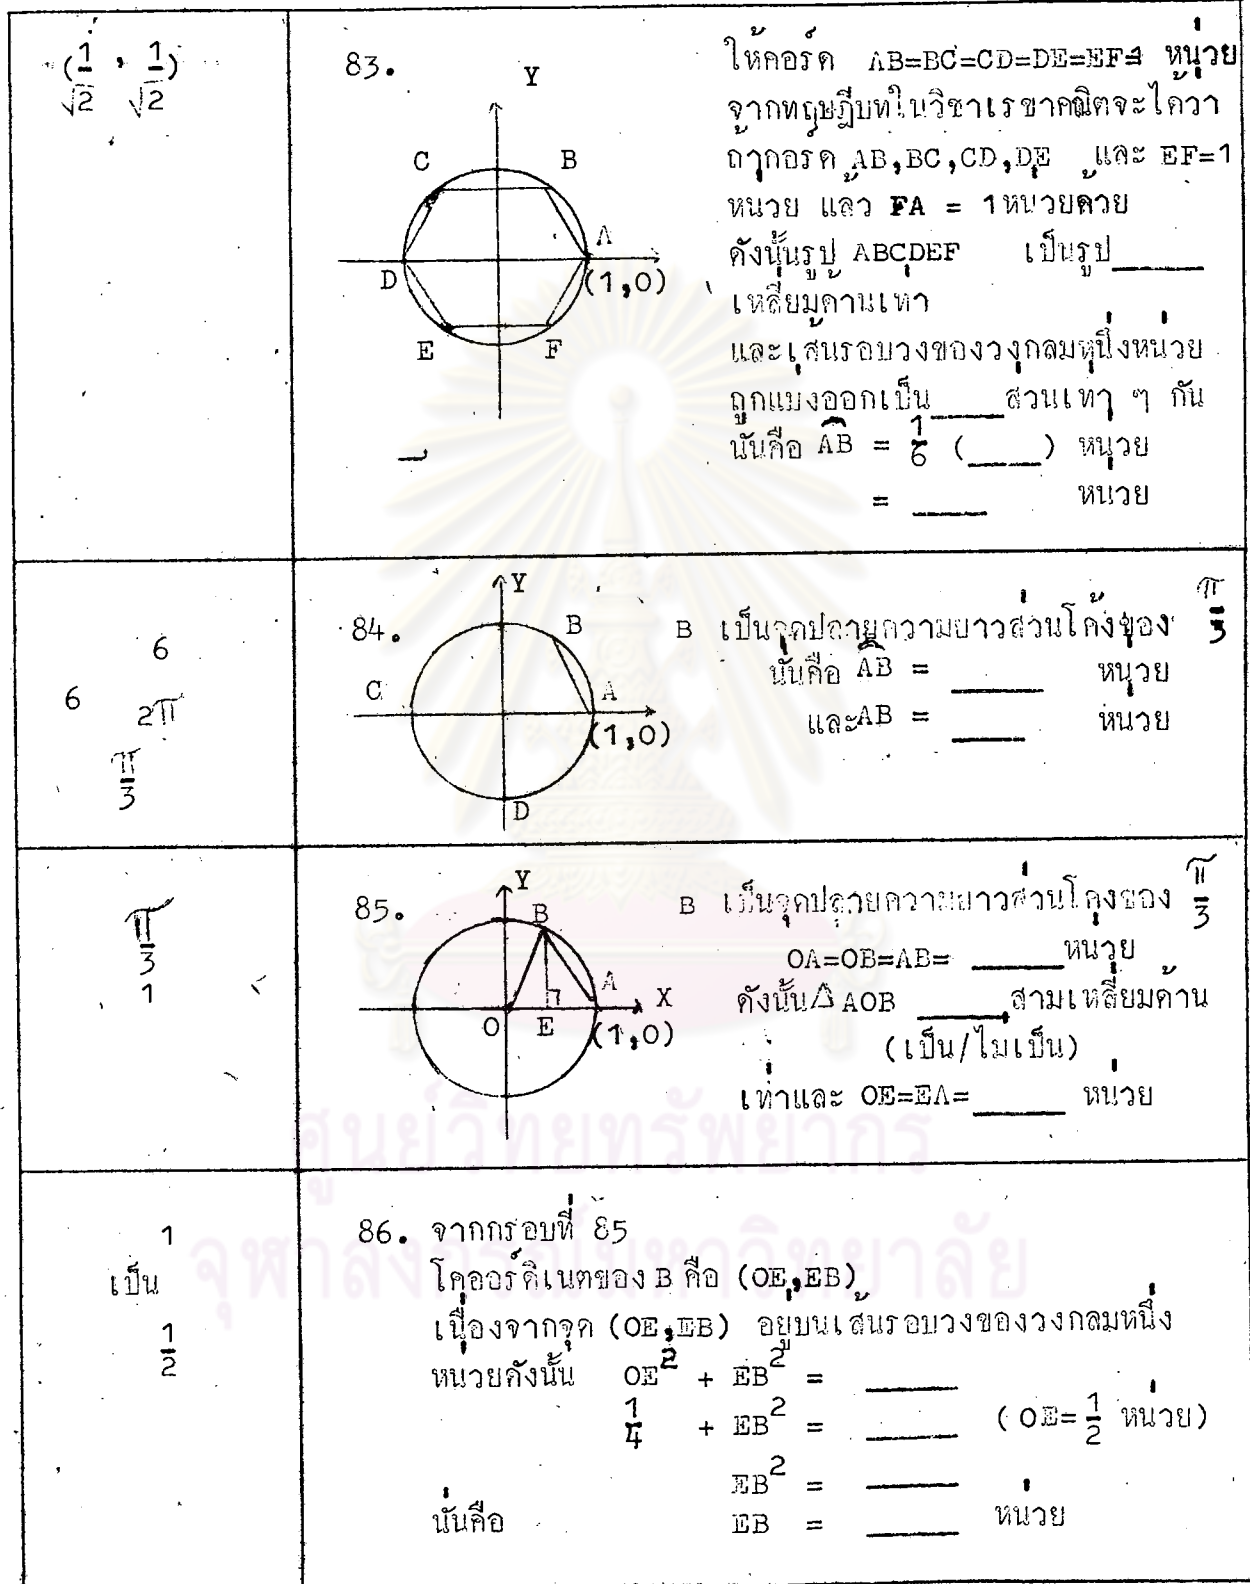 (1/√2 , 1/√2)
83.
Y
C
B
A
D
(1,0)
E
F
ให้คอร์ด AB=BC=CD=DE=EF=1 หน่วย
จากทฤษฎีบทในวิชาเรขาคณิตจะได้ว่า
ถ้าคอร์ด AB,BC,CD,DE และ EF=1
หน่วย แล้ว FA = 1 หน่วยด้วย
ดังนั้นรูป ABCDEF เป็นรูป_____
เหลี่ยมด้านเท่า
และเส้นรอบวงของวงกลมหนึ่งหน่วย
ถูกแบ่งออกเป็น____ส่วนเท่า ๆ กัน
นั่นคือ AB = 1/6 (____) หน่วย
= ____ หน่วย
6
6
2π
π/3
84.
Y
B
C
A
(1,0)
D
B เป็นจุดปลายความยาวส่วนโค้งของ π/3
นั่นคือ AB = _____ หน่วย
และAB = ____ หน่วย
π/3
1
85.
Y
B
A
X
O
E
(1,0)
B เป็นจุดปลายความยาวส่วนโค้งของ π/3
OA=OB=AB= _____หน่วย
ดังนั้น△AOB _____สามเหลี่ยมด้าน
(เป็น/ไม่เป็น)
เท่าและ OE=EA=_____ หน่วย
1
เป็น
1/2
86. จากกรอบที่ 85
โคออร์ดิเนตของ B คือ (OE,EB)
เนื่องจากจุด (OE,EB) อยู่บนเส้นรอบวงของวงกลมหนึ่ง
หน่วยดังนั้น OE² + EB² = _____
1/4 + EB² = _____ (OE=1/2 หน่วย)
EB² = _____
นั่นคือ EB = _____ หน่วย
ศูนย์วิทยทรัพยากร
จุฬาลงกรณ์มหาวิทยาลัย